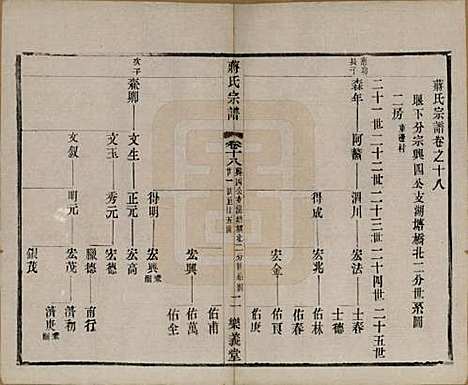 蔣氏宗譜卷之十八
堰下分宗興四公支湖塘橋北二分世系圖
二房 東邊村
二十一世二十二世二十三世二十四世二十五世
長子
森年 阿麟 泗川 宏法 士德
士春
得成 宏兆 佑林
宏金 佑良
佑庚
蔣氏宗譜
卷十八
二
樂義堂
次子
燊卿 文生 正元 宏興 佑甫
佑萬
佑全
得明 宏興
宏高
文玉 秀元 宏德
臘德 南行
文叙 明元 宏茂 清初
清庚
銀茂